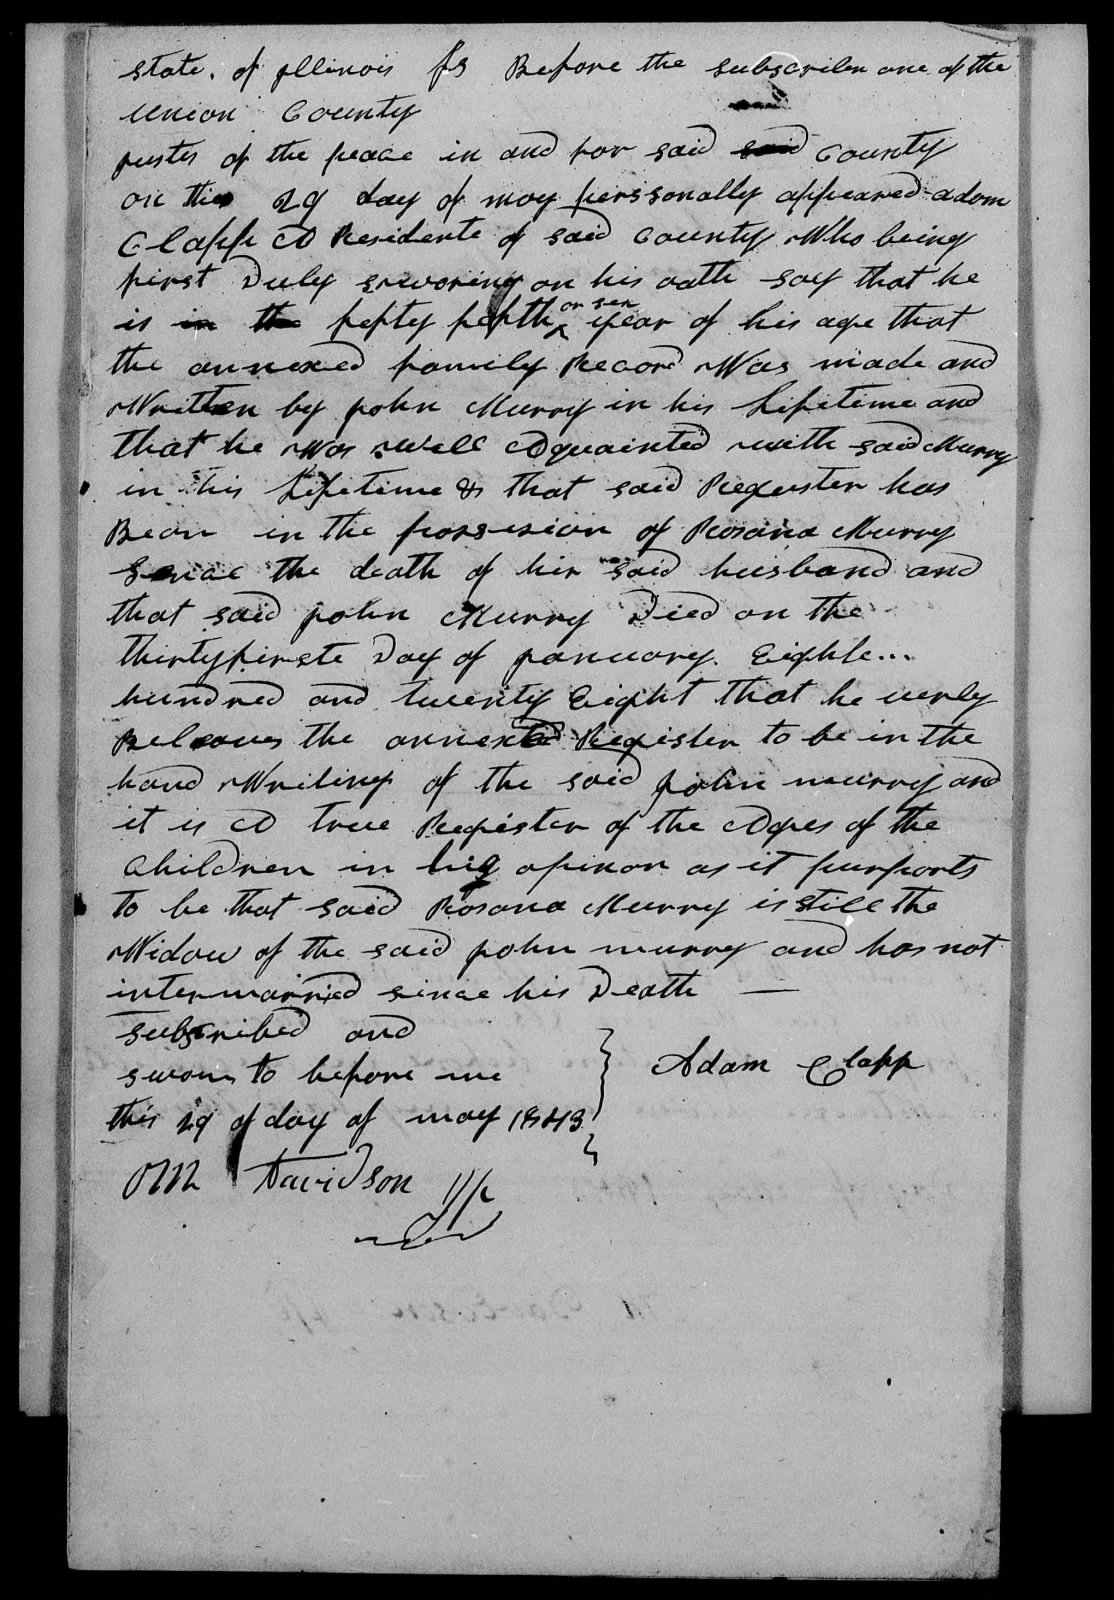 state. of Illinois ss Before the subscriber one of the
Union County
justes of the peace in and for said said County
on this 29 day of may perssonally appeared adam
Clapp a Residente of said County Who being
first Duly sworing on his oath say that he
is in the fefty fefth or sex year of his age that
the annexed family Record Was made and
Written by john Murry in his Lifetime and
that he Was Well aquainted with said Murry
in his Lifetime & that said Regester has
Bean in the possesion of Rosana Murry
Senae the death of her said husband and
that said john Murry Died on the
thirtyfirste Day of january. Eighte...
hundred and twenty Eight that he verly
Beleaves the annexed Register to be in the
hand Writing of the said john murry and
it is a true Register of the ages of the
Children in his opinon as it purports
to be that said Rosana Murry is still the
Widow of the said john murry and has not
intermarried since his Death —
subscribed and
sworn to before me
Adam Clapp
this 29 of day of may 1843
Davidson JP